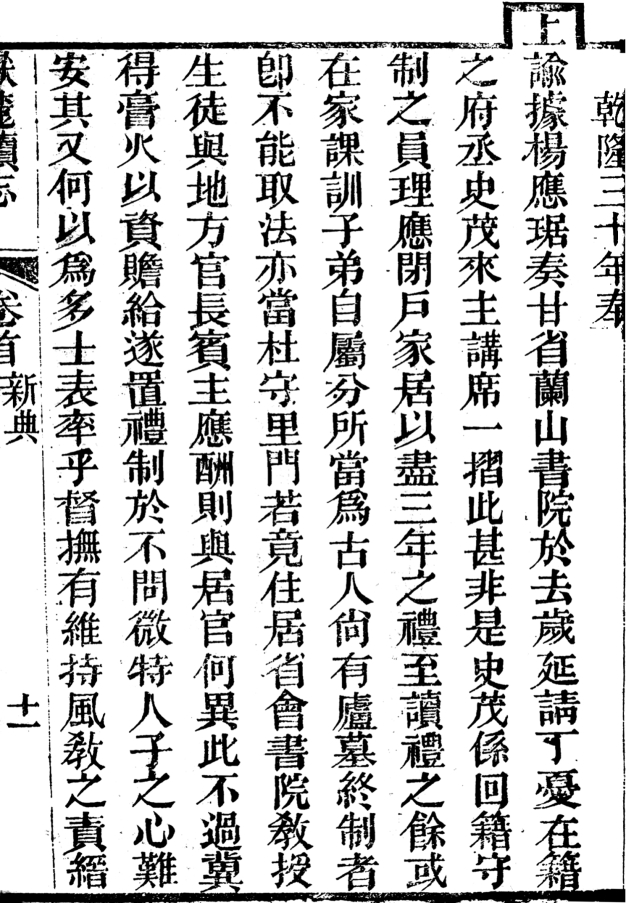 乾隆三十年奉
上
諭據楊應琚奏甘省蘭山書院於去歲延請丁憂在籍
之府丞史茂來主講席一摺此甚非是史茂係回籍守
制之員理應閉戸家居以盡三年之禮至讀禮之餘或
在家課訓子弟自屬分所當爲古人尙有廬墓終制者
卽不能取法亦當杜守里門若竟住居省會書院教授
生徒與地方官長賓主應酬則與居官何異此不過冀
得膏火以資贍給遂置禮制於不問微特人子之心難
安其又何以爲多士表率乎督撫有維持風教之責縉
嶽麓續志
卷首
新典
十一